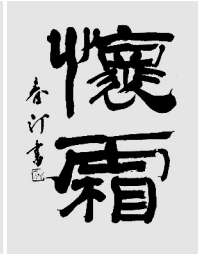 懷霜
春汀書